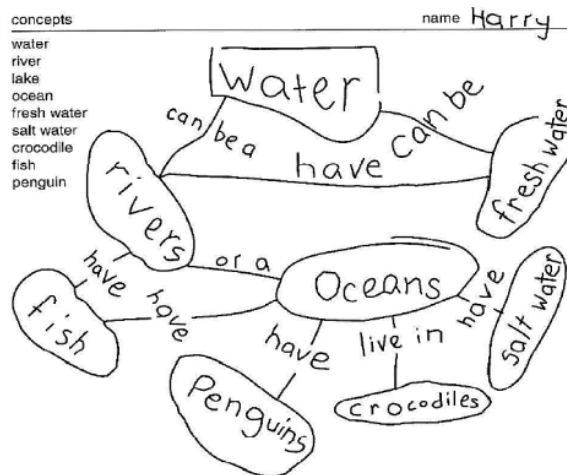 concepts
name Harry
water
river
lake
ocean
fresh water
salt water
crocodile
fish
penguin
water
can be a
can be
have
rivers
fresh water
or a
Oceans
have
have
fish
have
live in
have
salt water
Penguins
crocodiles